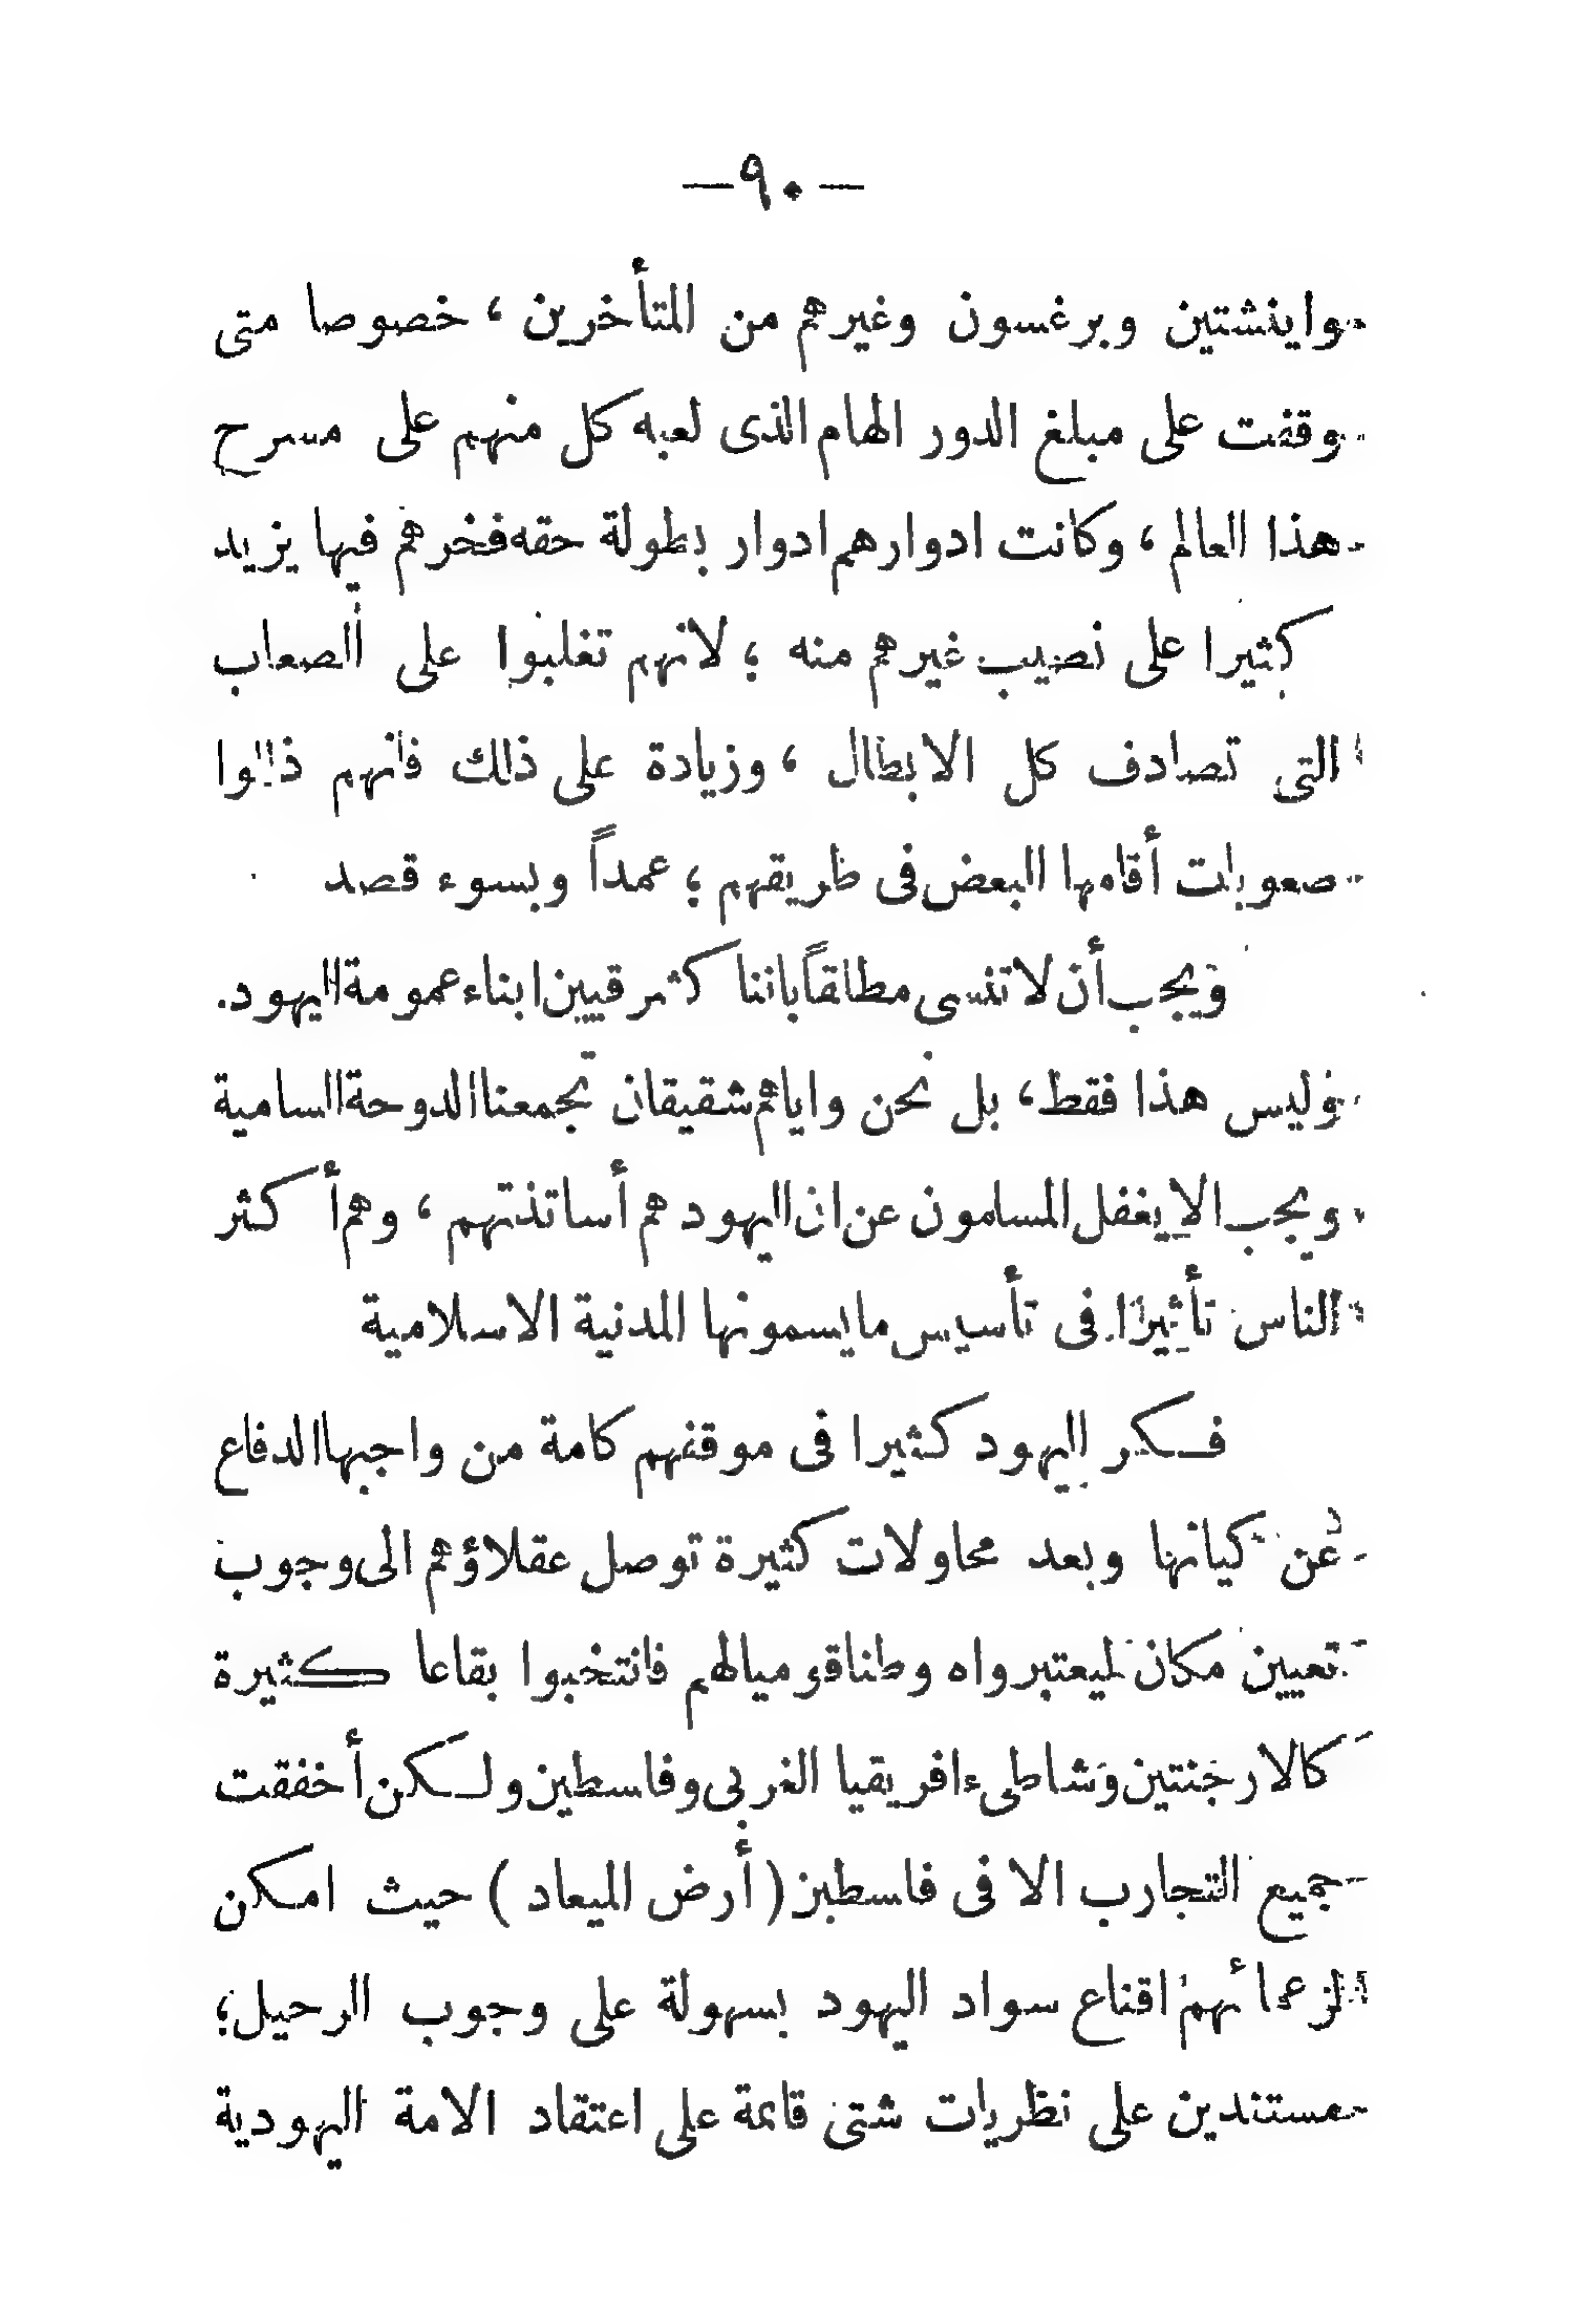 —٩٠—
واينشتين وبرغسون وغيرهم من المتأخرين ، خصوصا متى
وقفت على مبلغ الدور الهام الذى لعبه كل منهم على مسرح
هذا العالم ، وكانت ادوارهم ادوار بطولة حقه فخرهم فيها يزيد
كثيرا على نصيب غيرهم منه ؛ لانهم تغلبوا على الصعاب
التى تصادف كل الابطال ، وزيادة على ذلك فانهم ذللوا
صعوبات أقامها البعض فى طريقهم ؛ عمداً وبسوء قصد
ويجب أن لا تنسى مطلقاً باننا كشرقيين ابناء عمومة اليهود.
وليس هذا فقط ، بل نحن واياهم شقيقان تجمعنا الدوحة السامية
ويجب الا يغفل المسلمون عن ان اليهود هم أساتذتهم ، وهم أكثر
الناس تأثيرا فى تأسيس مايسمونها المدنية الاسلامية
فكر اليهود كثيرا فى موقفهم كامة من واجبها الدفاع
عن كيانها وبعد محاولات كثيرة توصل عقلاؤهم الى وجوب
تعيين مكان ليعتبرواه وطنا قوميا لهم فانتخبوا بقاعا كثيرة
كالارجنتين وشاطىء افريقيا الغربى وفلسطين ولكن أخفقت
جميع التجارب الا فى فلسطين ( أرض الميعاد ) حيث امكن
لزعمائهم اقناع سواد اليهود بسهولة على وجوب الرحيل ؛
مستندين على نظريات شتى قائمة على اعتقاد الامة اليهودية